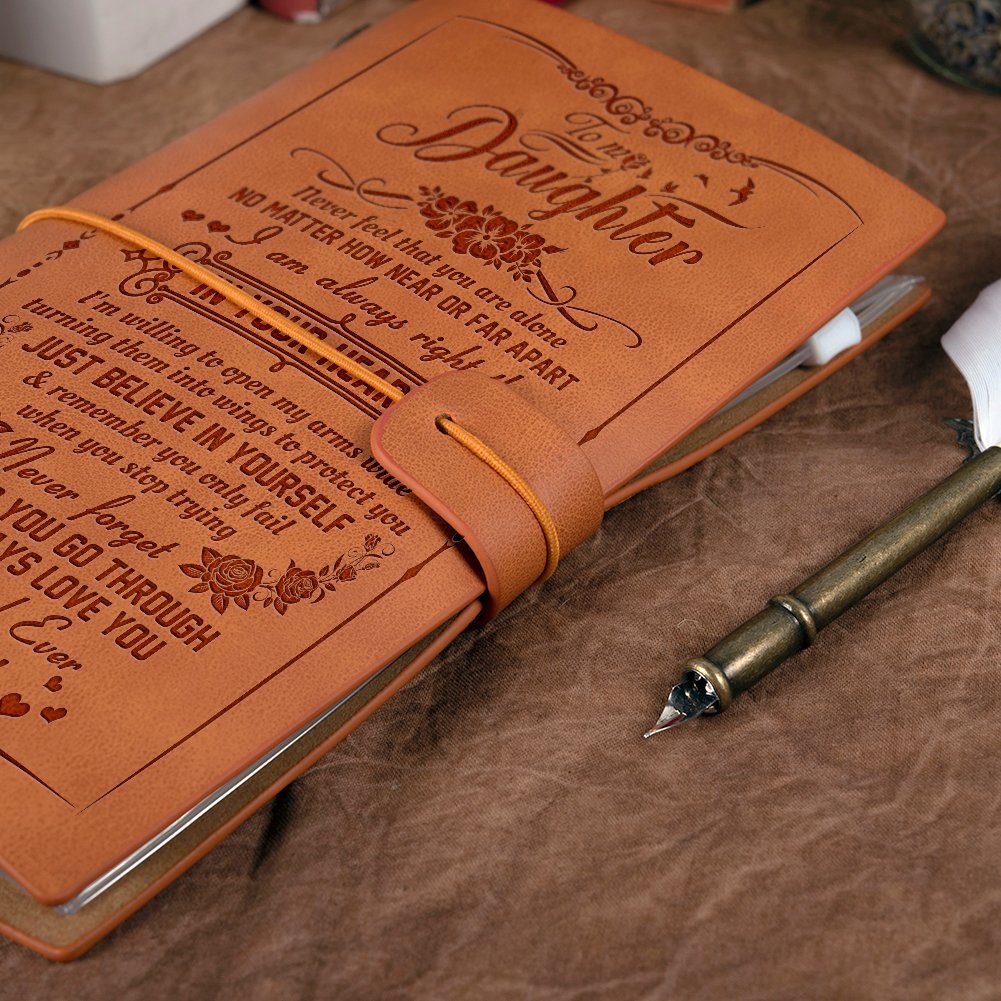 To my
Daughter
Never feel that you are alone
NO MATTER HOW NEAR OR FAR APART
I am always right
IN YOUR HEART
I'm willing to open my arms wide
turning them into wings to protect you
JUST BELIEVE IN YOURSELF
& remember you only fail
when you stop trying
Never forget
YOU GO THROUGH
LOVE YOU
Ever